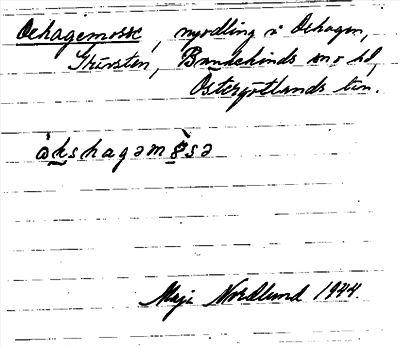 Oxhagemosse, nyodling i Oxhagen,
Skärsten, Brunskinds sn o hd,
Östergötlands län.
ɷ̀kshagəmɷ̀sə
Maja Nordlund 1944.